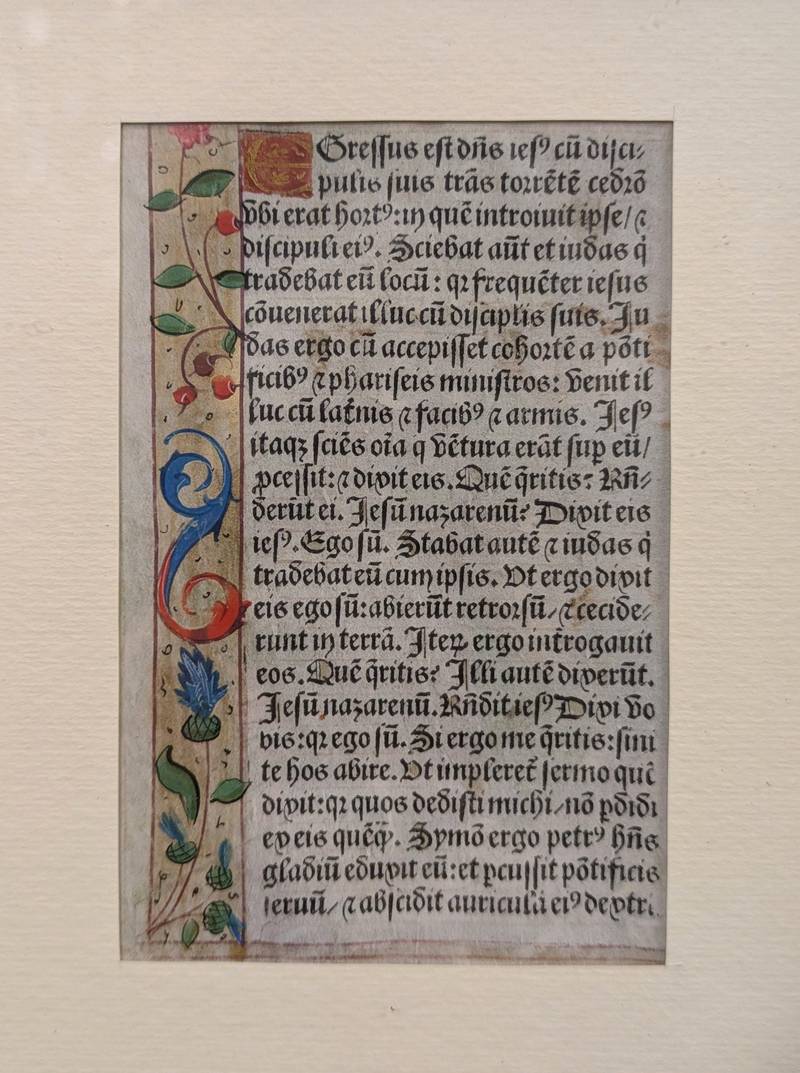 EGressus est dñs iesꝰ cũ disci⸗
pulis suis trãs torrẽtẽ cedrõ
vbi erat hortꝰ: in quẽ introiuit ipse/ ⁊
discipuli eiꝰ. Sciebat aũt et iudas q̃
tradebat eũ locũ: qꝛ frequẽter iesus
cõuenerat illuc cũ disciplis suis. Ju
das ergo cũ accepisset cohortẽ a põti
ficibꝰ ⁊ phariseis ministros: venit il
luc cũ lat̃nis ⁊ facibꝰ ⁊ armis. Jesꝰ
itaqꝫ sciẽs oĩa q vẽtura erãt suꝑ eũ/
ꝓcessit: ⁊ dixit eis. Quẽ q̃ritis? Rñ⸗
derũt ei. Jesũ nazarenũ? Dixit eis
iesꝰ. Ego sũ. Stabat autẽ ⁊ iudas q̃
tradebat eũ cum ipsis. Vt ergo dixit
eis ego sũ: abierũt retrorsũ/ ⁊ cecide⸗
runt in terrã. Iteꝝ ergo int̃rogauit
eos. Quẽ q̃ritis? Illi autẽ dixerũt.
Jesũ nazarenũ. Rñdit iesꝰ Dixi vo
bis: qꝛ ego sũ. Si ergo me q̃ritis: sini
te hos abire. Vt impleret̃ sermo quẽ
dixit: qꝛ quos dedisti michi/ nõ ꝑdidi
ex eis quẽq̃. Symõ ergo petrꝰ hñs
gladiũ eduxit eũ: et ꝑcussit põtificis
seruũ/ ⁊ abscidit auriculã eiꝰ dextrã